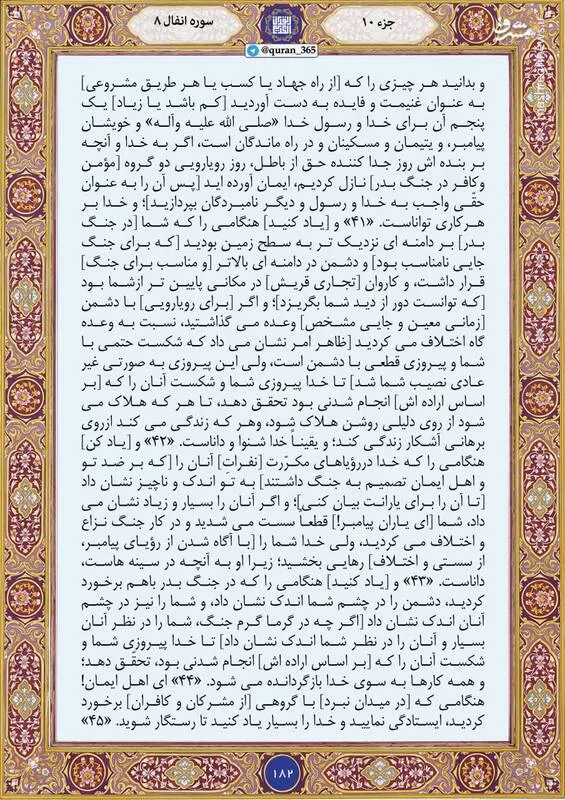 جزء ۱۰
سوره انفال ۸
@quran_365
و بدانید هر چیزی را که [از راه جهاد یا کسب یا هر طریق مشروعی]
به عنوان غنیمت و فایده به دست آوردید [کم باشد یا زیاد] یک
پنجم آن برای خدا و رسول خدا «صلی الله علیه وآله» و خویشان
پیامبر، و یتیمان و مسکینان و در راه ماندگان است، اگر به خدا و آنچه
بر بنده اش روز جدا کننده حق از باطل، روز رویارویی دو گروه [مؤمن
وکافر در جنگ بدر] نازل کردیم، ایمان آورده اید [پس آن را به عنوان
حقّی واجب به خدا و رسول و دیگر نامبردگان بپردازید]؛ و خدا بر
هرکاری تواناست. «۴۱» و [یاد کنید] هنگامی را که شما [در جنگ
بدر] بر دامنه ای نزدیک تر به سطح زمین بودید [که برای جنگ
جایی نامناسب بود] و دشمن در دامنه ای بالاتر [و مناسب برای جنگ]
قرار داشت، و کاروان [تجاری قریش] در مکانی پایین تر ازشما بود
[که توانست دور از دید شما بگریزد]؛ و اگر [برای رویارویی] با دشمن
[زمانی معین و جایی مشخص] وعده می گذاشتید، نسبت به وعده
گاه اختلاف می کردید [ظاهر امر نشان می داد که شکست حتمی با
شما و پیروزی قطعی با دشمن است، ولی این پیروزی به صورتی غیر
عادی نصیب شما شد] تا خدا پیروزی شما و شکست آنان را که [بر
اساس اراده اش] انجام شدنی بود تحقق دهد، تا هر که هلاک می
شود از روی دلیلی روشن هلاک شود، وهر که زندگی می کند ازروی
برهانی آشکار زندگی کند؛ و یقیناً خدا شنوا و داناست. «۴۲» و [یاد کن]
هنگامی را که خدا دررؤیاهای مکرّرت [نفراتِ] آنان را [که بر ضد تو
و اهل ایمان تصمیم به جنگ داشتند] به تو اندک و ناچیز نشان داد
[تا آن را برای یارانت بیان کنی]؛ و اگر آنان را بسیار و زیاد نشان می
داد، شما [ای یاران پیامبر!] قطعاً سست می شدید و در کار جنگ نزاع
و اختلاف می کردید، ولی خدا شما را [با آگاه شدن از رؤیای پیامبر،
از سستی و اختلاف] رهایی بخشید؛ زیرا او به آنچه در سینه هاست،
داناست. «۴۳» و [یاد کنید] هنگامی را که در جنگ بدر باهم برخورد
کردید، دشمن را در چشم شما اندک نشان داد، و شما را نیز در چشم
آنان اندک نشان داد [اگر چه در گرما گرم جنگ، شما را در نظر آنان
بسیار و آنان را در نظر شما اندک نشان داد] تا خدا پیروزی شما و
شکست آنان را که [بر اساس اراده اش] انجام شدنی بود، تحقّق دهد؛
و همه کارها به سوی خدا بازگردانده می شود. «۴۴» ای اهل ایمان!
هنگامی که [در میدان نبرد] با گروهی [از مشرکان و کافران] برخورد
کردید، ایستادگی نمایید و خدا را بسیار یاد کنید تا رستگار شوید. «۴۵»
۱۸۲